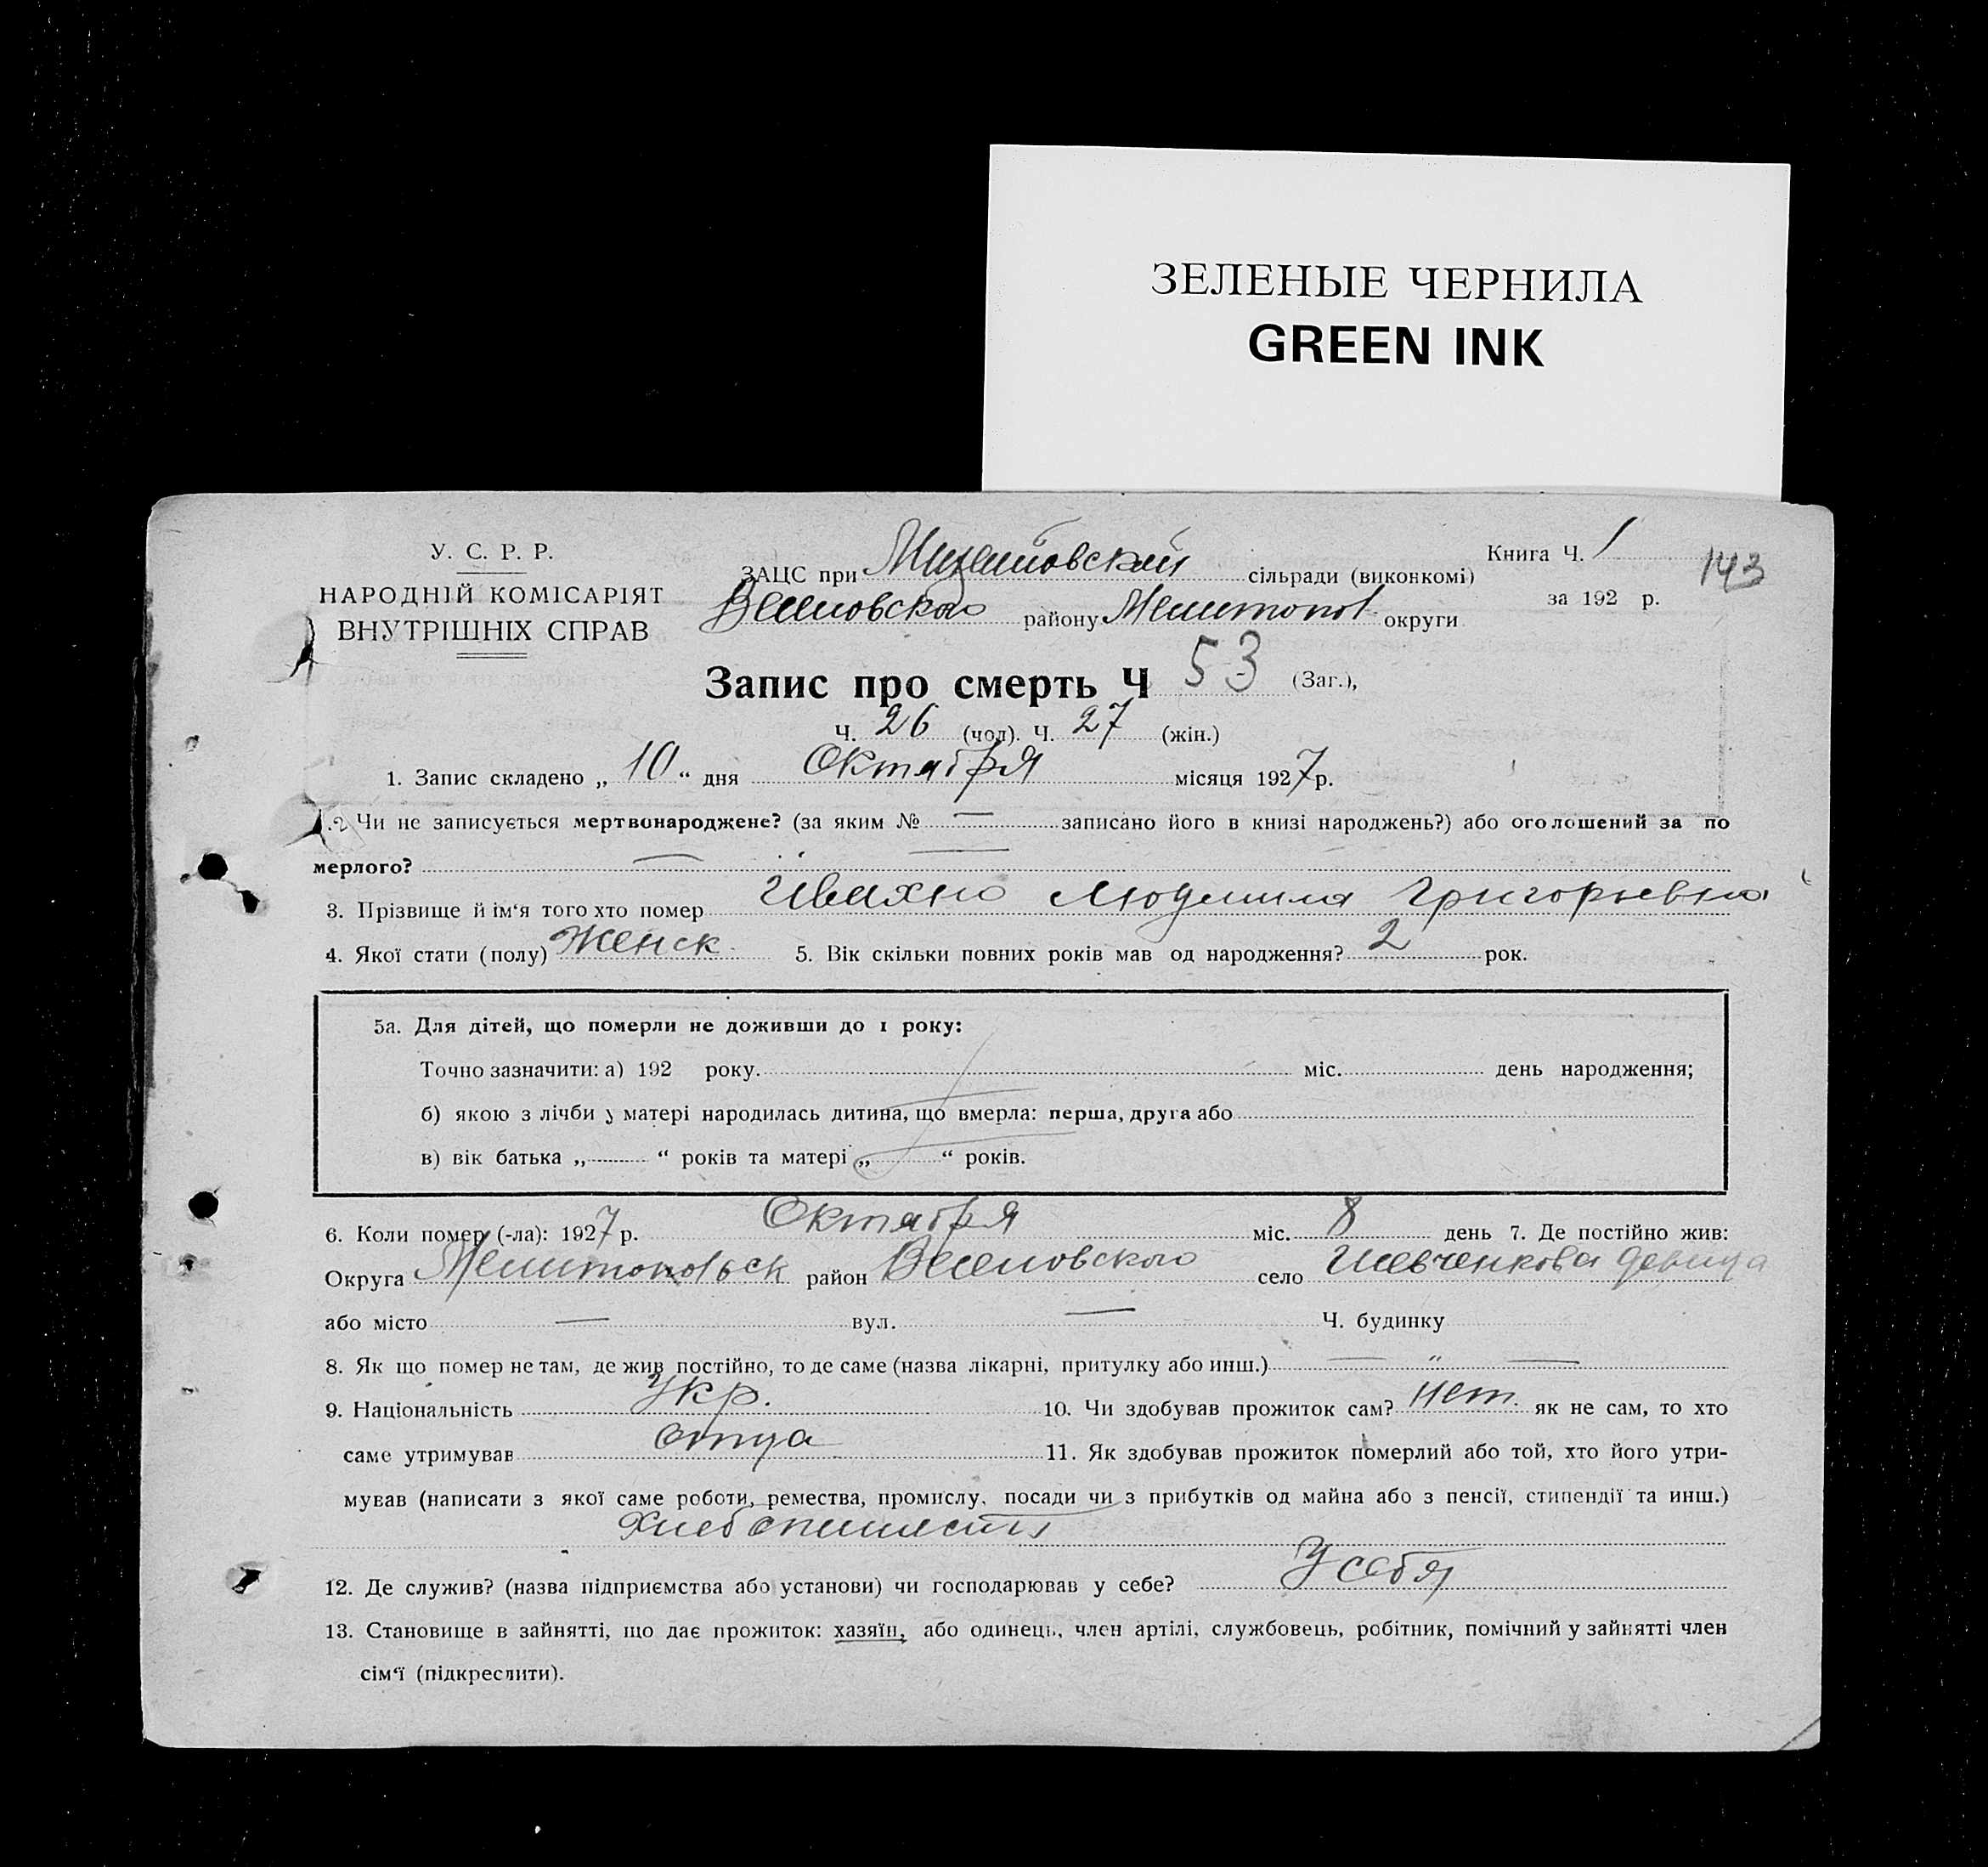 ЗЕЛЕНЫЕ ЧЕРНИЛА
GREEN INK
У. С. Р. Р.
НАРОДНІЙ КОМІСАРІЯТ
ВНУТРІШНІХ СПРАВ
Книга Ч. 1
143
за 192 р.
ЗАЦС при сільради (виконкомі)
Веселовского району Мелитопол округи
Запис про смерть Ч 53 (Заг.),
Ч. 26 (чол). Ч. 27 (жін.)
1. Запис складено „ 10 “ дня Октября місяця 1927 р.
2 Чи не записується мертвонароджене? (за яким № — записано його в книзі народжень?) або оголошений за по
мерлого? — —
3. Прізвище й ім'я того хто помер Ивахно Людмила Григорьевна
4. Якої стати (полу) Женск. 5. Вік скільки повних років мав од народження? 2 рок.
5а. Для дітей, що померли не доживши до 1 року:
Точно зазначити: а) 192 року. міс. день народження;
б) якою з лічби у матері народилась дитина, що вмерла: перша, друга або
в) вік батька „ “ років та матері „ “ років.
6. Коли помер (-ла): 1927 р. Октября міс. 8 день 7. Де постійно жив:
Округа Мелитопольск район Веселовского село Шевченкова
або місто — вул. — Ч. будинку
8. Як що помер не там, де жив постійно, то де саме (назва лікарні, притулку або инш.) — „ —
9. Національність Укр. 10. Чи здобував прожиток сам? нет. як не сам, то хто
саме утримував отца 11. Як здобував прожиток померлий або той, хто його утри-
мував (написати з якої саме роботи, ремества, промислу, посади чи з прибутків од майна або з пенсії, стипендії та инш.)
12. Де служив? (назва підприємства або установи) чи господарював у себе? У себя
13. Становище в зайнятті, що дає прожиток: хазяїн, або одинець, член артілі, службовець, робітник, помічний у зайнятті член
сім'ї (підкреслити).